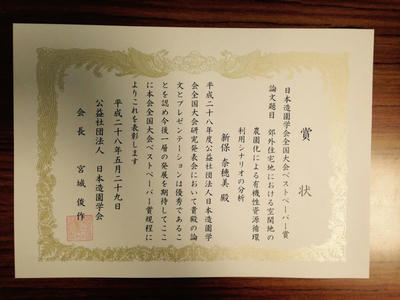 賞状
日本造園学会全国大会ベストペーパー賞
論文題目 郊外住宅地における空閑地の
農園化による有機性資源循環
利用シナリオの分析
新保 奈穂美 殿
平成二十八年度公益社団法人日本造園学
会全国大会研究発表会において貴殿の論
文とプレゼンテーションは優秀であるこ
とを認め今後一層の発展を期待してここ
に本会全国大会ベストペーパー賞規程に
よりこれを表彰します
平成二十八年五月二十九日
公益社団法人 日本造園学会
会長 宮城 俊作